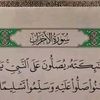 سورة الأحزاب
ئِكَتَهُ يُصَلُّونَ عَلَى النَّبِيِّ يَا
صَلُّوا عَلَيْهِ وَسَلِّمُوا تَسْلِيمًا